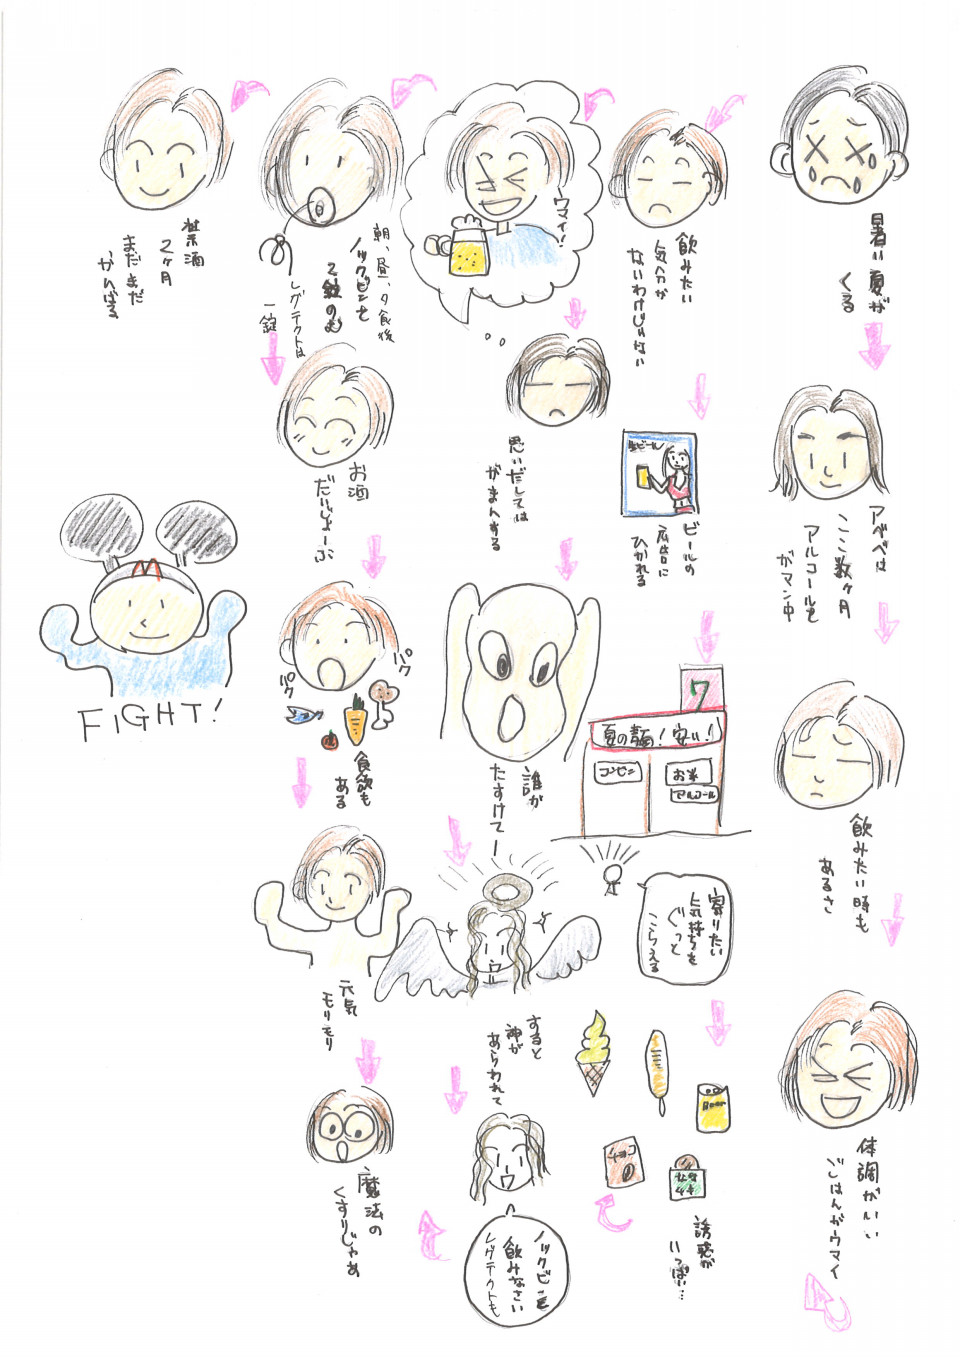 暑い夏が
くる
アベベは
ここ数ヶ月
アルコールを
ガマン中
飲みたい時も
あるさ
体調がいい
ごはんがウマイ
飲みたい
気分が
ないわけじゃない
生ビール
ビールの
広告に
ひかれる
ワ
夏の麺!安い!
コンビニ
お米
アルコール
寄りたい
気持ちを
ぐっと
こらえる
Beer
チョコ
誘惑が
いっぱい…
ウマイ!
思いだしては
がまんする
誰か
たすけてー
すると
神が
あらわれて
ノックビンを
飲みなさい
レグテクトも
朝、昼、夕食後
ノックビンを
2錠のむ
レグテクトは
一錠
お酒
だいじょーぶ
パク
パク
食欲も
ある
元気
モリモリ
魔法の
くすりじゃあ
禁酒
2ヶ月
まだまだ
がんばる
FIGHT!